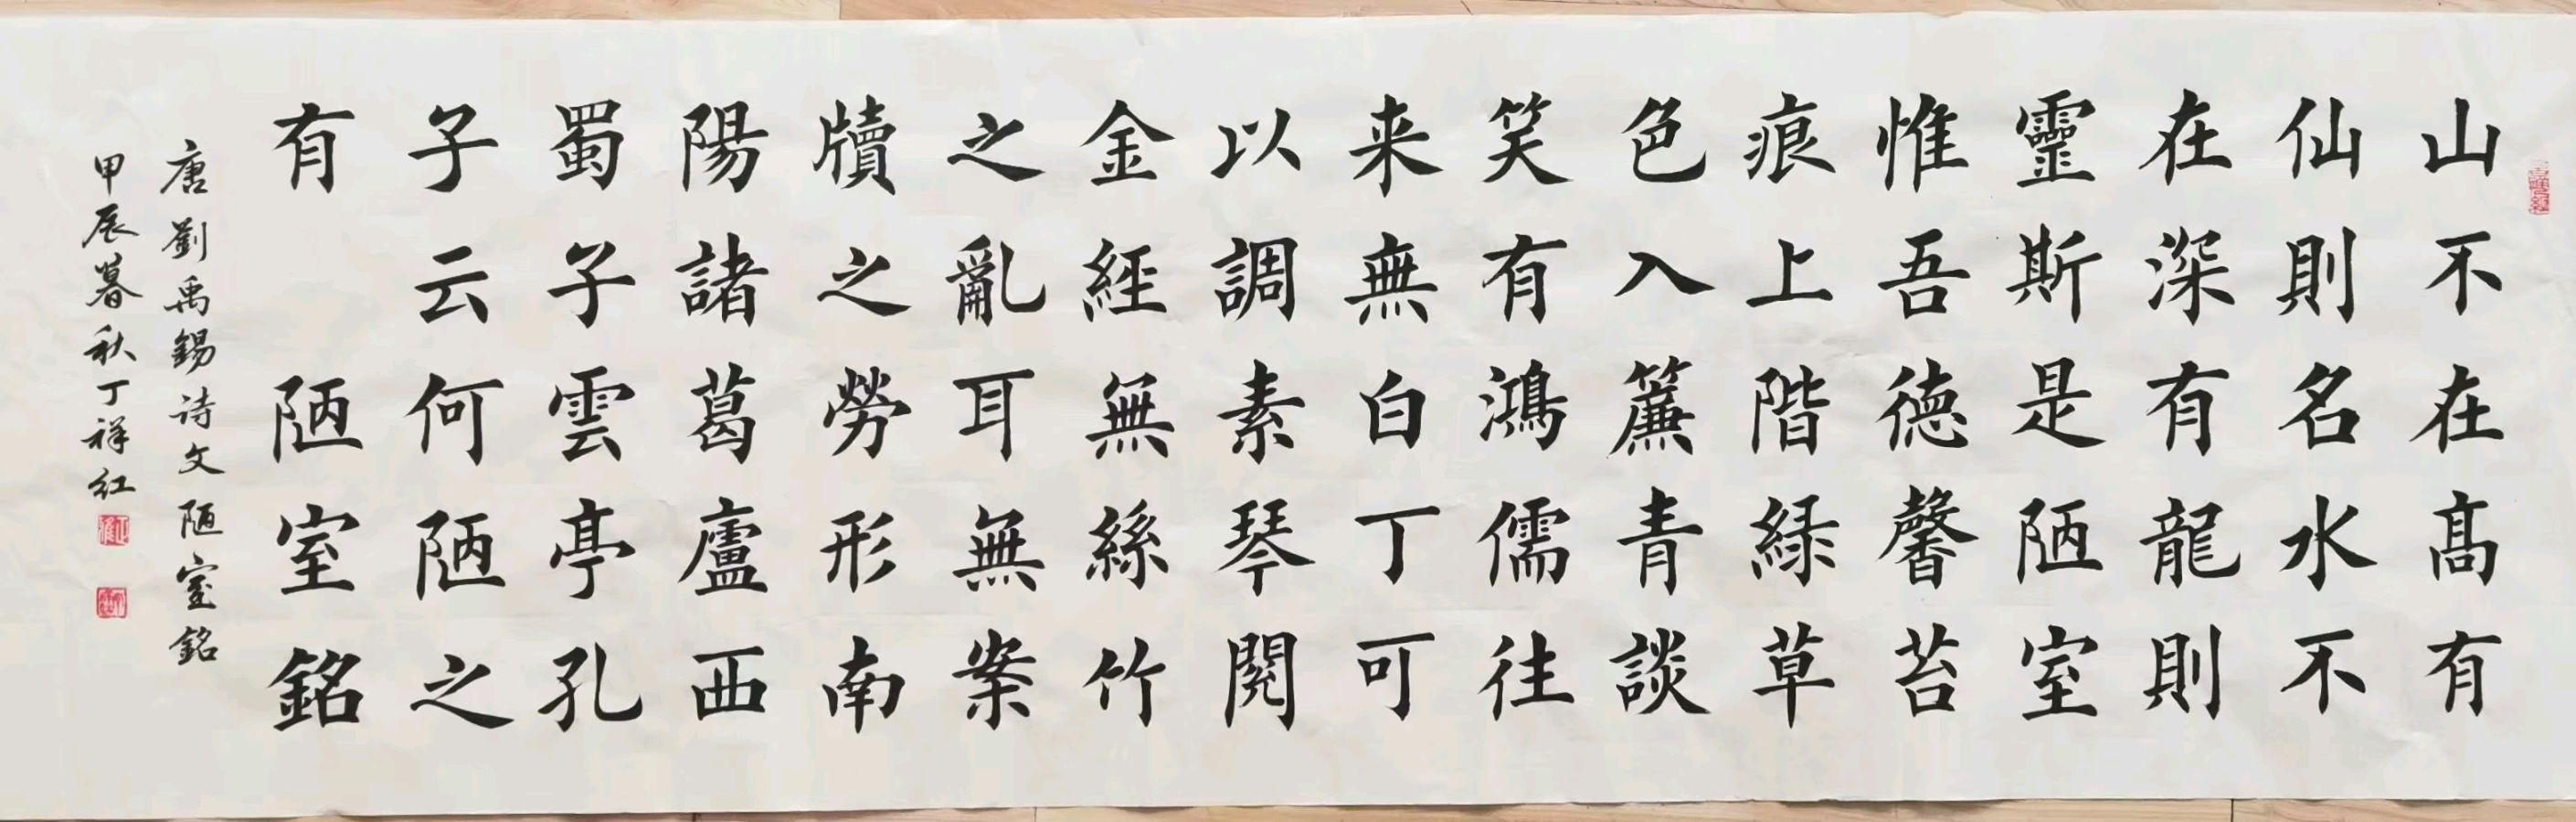 山不在髙有
仙則名水不
在深有龍則
靈斯是陋室
惟吾德馨苔
痕上階緑草
色入簾青談
笑有鴻儒往
来無白丁可
以調素琴閱
金經無絲竹
之亂耳無案
牘之勞形南
陽諸葛廬西
蜀子雲亭孔
子云何陋之
有 陋室銘
唐劉禹錫诗文陋室銘
甲辰暮秋丁祥红